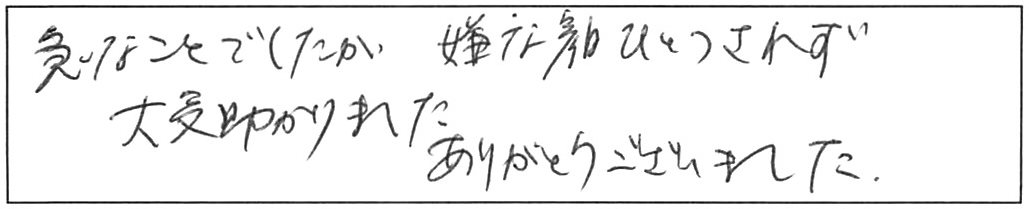 急なことでしたが 嫌な顔ひとつされず
大変助かりました
ありがとうございました.